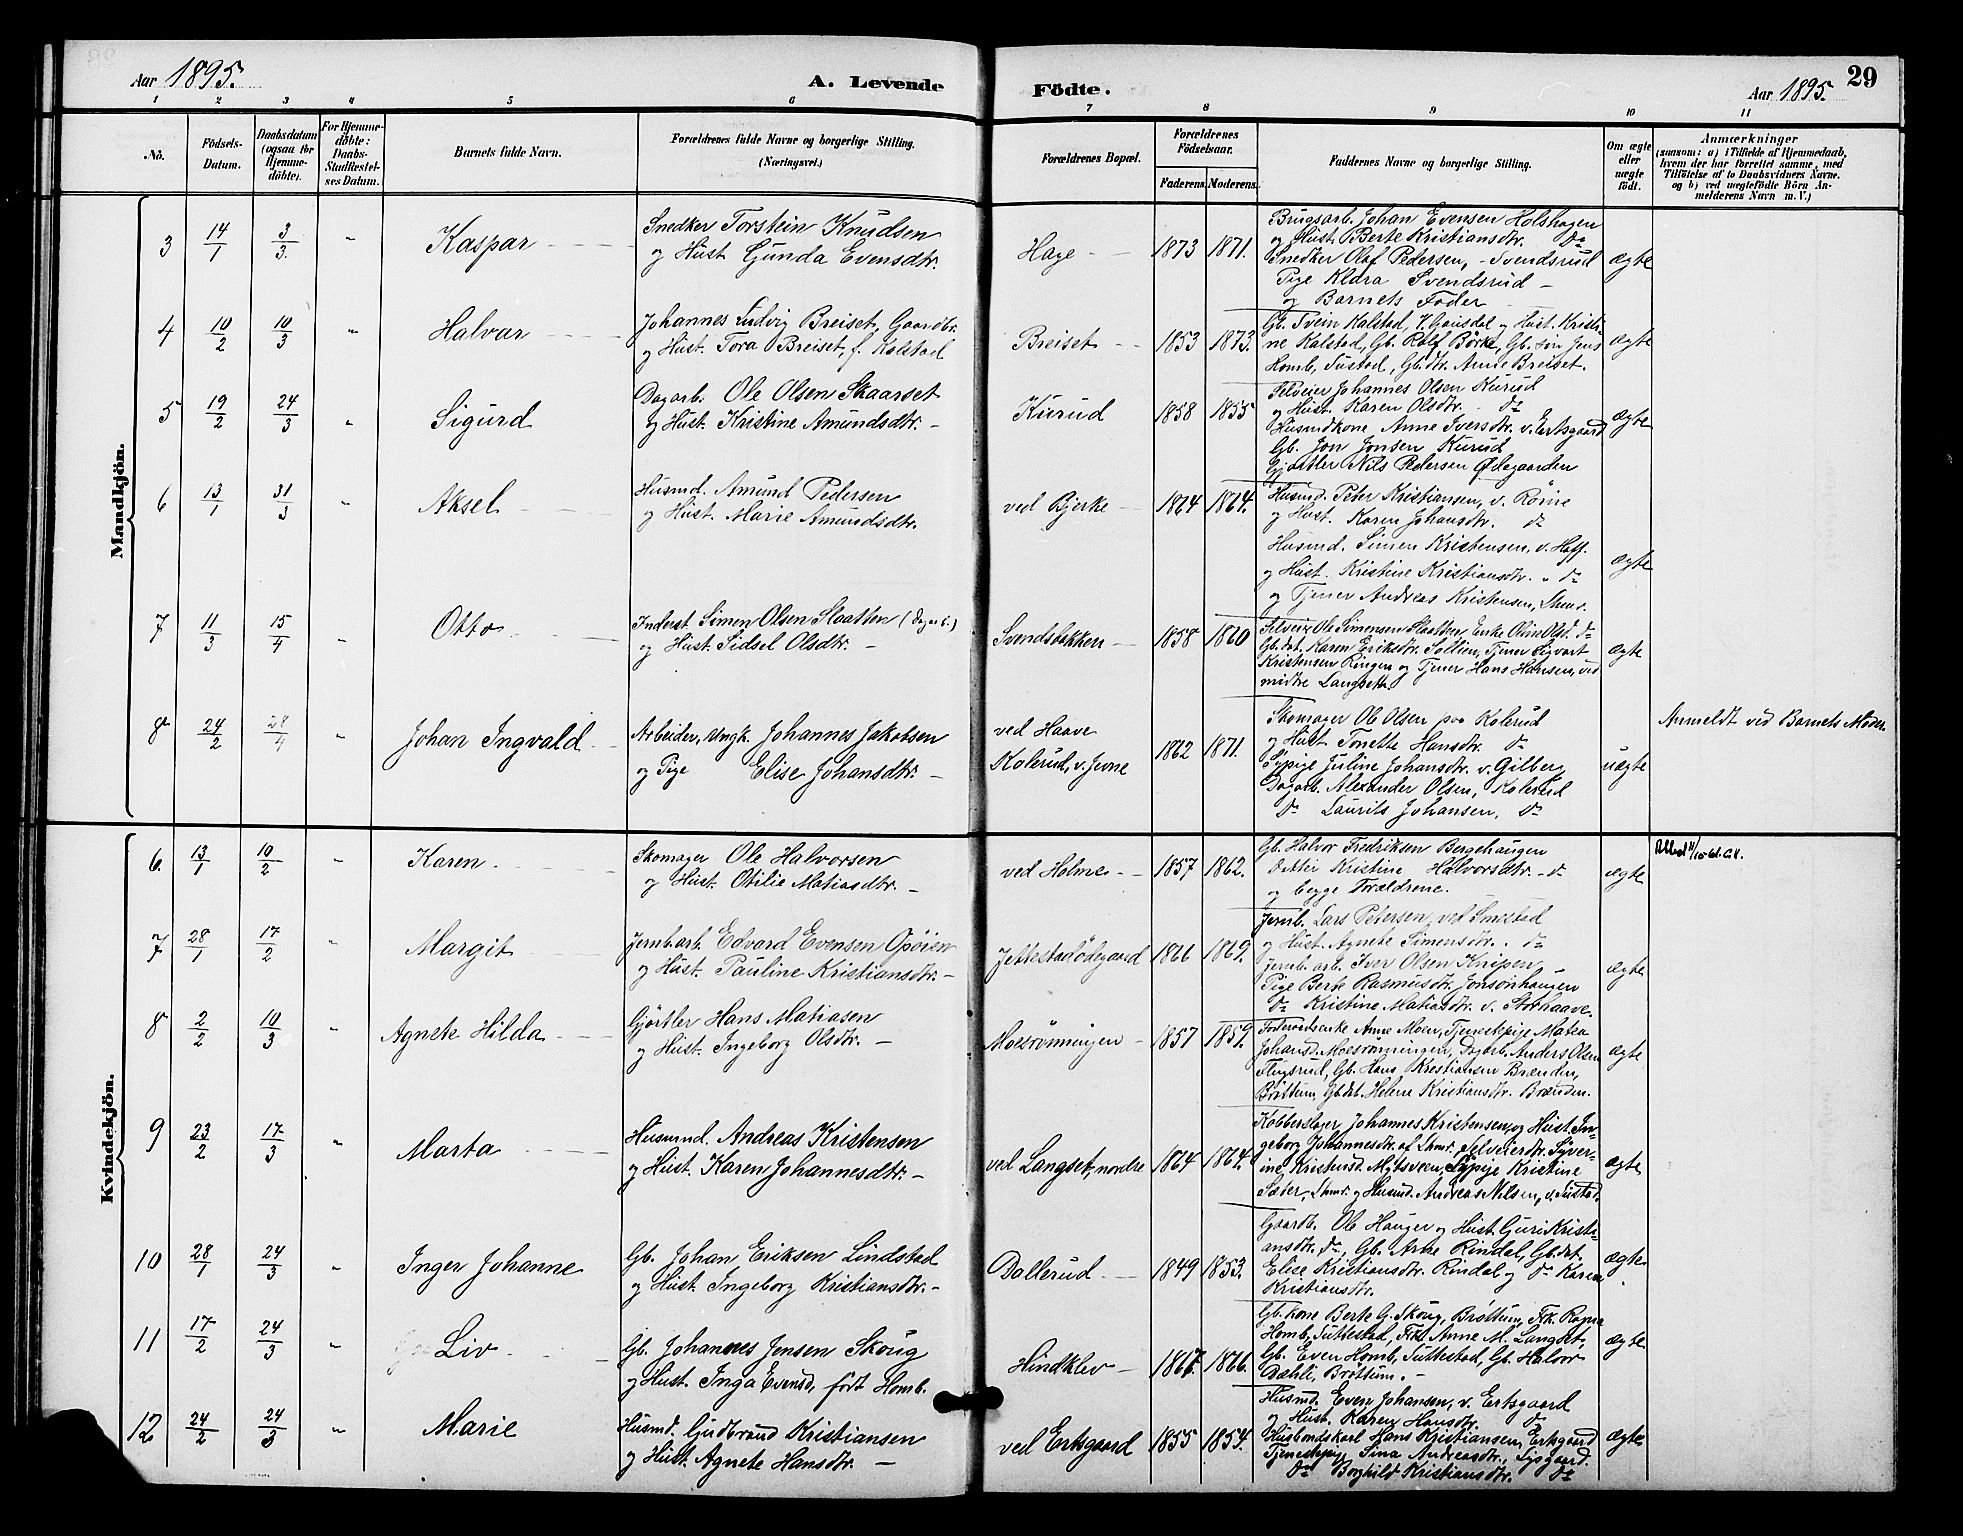 Aar 1895. A. Levende Födte. Aar 1895. 29
1 2 3 4 5 6 7 8 9 10 11
No.
Födsels-Datum.
Daabsdatum (ogsaa for Hjemmedöbte).
For Hjemmedöbte: Daabs-Stadfæstelses Datum.
Barnets fulde Navn.
Forældrenes fulde Navne og borgerlige Stilling. (Næringsvei.)
Forældrenes Bopæl.
Forældrenes Födselsaar.
Faderens. Moderens.
Faddernes Navne og borgerlige Stilling.
Om ægte eller uægte födt.
Anmærkninger
(saasom: a) i Tilfælde af Hjemmedaab,
hvem der har forrettet samme, med
Tilföielse af to Daabsvidners Navne.
og b) ved uægtefödte Börn Anmelderens Navn m. V.)
Mandkjön.
3 14/1 3/3 " Kaspar
Snedker Torstein Knudsen
og Hust. Gunda Evensdtr.
Hage 1873 1871.
Brugsarb. Johan Evensen Holshagen
og Hust. Berte Kristiansdtr. do
Snedker Olaf Pedersen, Svendsrud
Pige Klara Svendsrud
og Barnets Fader
ægte
4 10/2 10/3 " Halvar
Johannes Ludvig Breiset, Gaardbr.
og Hust. Tora Breiset, f. Kalstad
Breiset 1853 1873.
Gb. Svein Kalstad, V. Gausdal og Hust. Kristi-
ne Kalstad, Gb. Rolf Börke, Gb. sön Jens
Homb, Sustad, Gb.dtr. Anne Breiset.
ægte
5 19/2 24/3 " Sigurd
Dagarb. Ole Olsen Skaarset
og Hust. Kristine Amundsdtr.
Kurud 1858 1855
Selveier Johannes Olsen Kurud
og Hust. Karen Olsdtr. do
Husmdkone Anne Iversdtr. v. Ertsgaard
Gb. Jon Jonsen Kurud
Gjörtler Nils Pedersen Ödegaarden
ægte
6 13/1 31/3 " Aksel
Husmd. Amund Pedersen
og Hust. Marie Amundsdtr.
ved Bjerke 1864 1864.
Husmd. Peter Kristiansen, v. Rörne
og Hust. Karen Johansdtr. do
Husmd. Simen Kristensen, v. Hoff.
og Hust. Kristine Kristiansdtr. " do
og Tjener Andreas Kristensen, Lhmr.
ægte
7 11/3 15/4 " Otto
Inderst Simen Olsen Slaatten (dagarb.)
og Hust. Sidsel Olsdtr.
Svendsbakken 1858 1860
Selveier Ole Simensen Slaatten, Enke Oline Olsd. do
Gb. dat. Karen Eriksdtr. Solliin, Tjener Sigvart
Kristensen Ringen og Tjener Hans Hansen, ved
midtre Langset
ægte
8 24/2 28/4 " Johan Ingvald
Arbeider, Ungk. Johannes Jakobsen
og Pige Elise Johansdtr.
ved Haave
Kolerud, v. Jevne
1862 1871.
Skomager Ole Olsen paa Kolerud
og Hust. Tonette Hansdtr. do
Sypige Juline Johansdtr. v. Gilberg
Dagarb. Alexander Olsen, Kolerud
do Laurits Johansen, do
uægte
Anmeldt ved Barnets Moder.
Kvindekjön.
6. 13/1 10/2 " Karen
Skomager Ole Halvorsen
og Hust. Otilie Matiasdtr.
ved Holme 1857 1862.
Gb. Halvor Fredriksen Bergehaugen
Datter Kristine Halvorsdtr. do
og begge Forældrene.
ægte
7 28/1 17/2 " Margit
Jernb.arb. Edvard Evensen Opöien
og Hust. Pauline Kristiansdtr.
Jettestadödegaard 1866 1869.
Jernb. Lars Petersen, ved Smestad
og Hust. Agnete Simensdtr. do
Jernb. arb. Iver Olsen Knipen
Pige Berte Rasmusdtr. Jonsonhaugen
do Kristine Matiasdtr. v. Storhaave.
ægte
8 2/2 10/3 " Agnete Hilda
Gjörtler Hans Matiasen
og Hust. Ingeborg Olsdtr.
Moesrönningen 1857 1859.
Foderaadsenke Anne Moen, Tjenestepige Matea
Johansd. Moesrönningen, Dagarb. Anders Olsen
Flugsrud, Gb. Hans Kristiansen Brænden,
Bröttum, Gb.dat. Helene Kristiansdtr. Brænden.
ægte
9 23/2 17/3 " Marta
Husmd. Andreas Kristensen
og Hust. Karen Johannesdtr.
ved Langset, nordre 1864 1864.
Kobberslager Johannes Kristensen og Hust. In-
geborg Johannesdtr. af Lhmr. Selveierdtr. Syver-
ine Kristensd. Mytsveen, Sypige Kristine
Sæter, Lhmr. og Husmd. Andreas Nilsen, v. Sustad.
ægte
10 28/1 24/3 " Inger Johanne
Gb. Johan Eriksen Lindstad
og Hust. Ingeborg Kristiansdtr.
Dallerud 1849 1853.
Gaardb. Ole Hauger og Hust. Guri Kristi-
ansdtr. do, Gb. Arne Rindal, Gb. dat.
Elise Kristiansdtr. Rindal og do Karen
Kristiansdtr.
ægte
11 17/2 24/3 " Liv
Gb. Johannes Jensen Skoug
og Hust. Inga Evensd, född Homb.
Hindklev 1867. 1866.
Gb. kone Berte G. Skoug, Bröttum, Frk. Ragna
Homb, Suttestad, Frk. Anne M. Langset,
Gb. Even Homb, Suttestad, Gb. Halvor
Dæhli, Bröttum.
ægte
12 24/2 24/3 " Marie
Husmd. Gudbrand Kristiansen
og Hust. Agnete Hansdtr.
ved Ertsgaard 1855 1854.
Husmd. Even Johansen, v. Ertsgaard
og Hust. Karen Hansdtr. do
Husbondskarl Hans Kristiansen, Ertsgaard
Tjenestepige Sina Andreasdtr. Lysgaard.
do Borghild Kristiansdtr. do
ægte